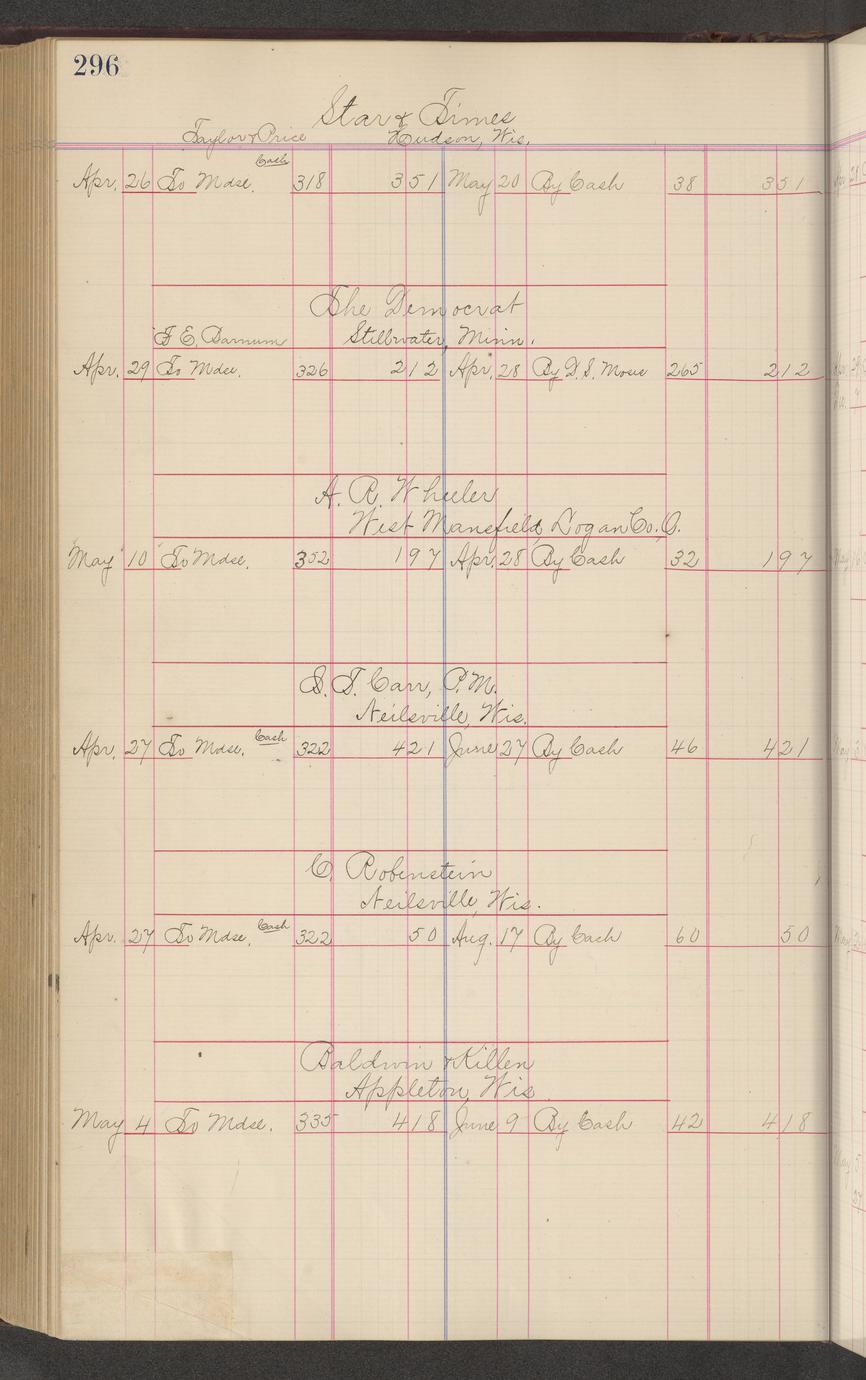 296
Star & Times
Taylor & Price Hudson, Wis.
Cash
Apr. 26 To Mdse. 318 351 May 20 By Cash 38 351
The Democrat
F. E. Barnum Stillwater, Minn.
Apr. 29 To Mdse. 326 212 Apr. 28 By D. S. 265 212
A. R. Wheeler
West Mansfield, Logan Co. O.
May 10 To Mdse. 352 197 Apr. 28 By Cash 32 197
S. T. Carr, P. M.
Neilsville, Wis.
Apr. 27 To Mdse. Cash 322 421 June 27 By Cash 46 421
C. Robenstein
Neilsville, Wis.
Apr. 27 To Mdse. Cash 322 50 Aug. 17 By Cash 60 50
Baldwin & Killen
Appleton, Wis
May 4 To Mdse. 335 418 June 9 By Cash 42 418